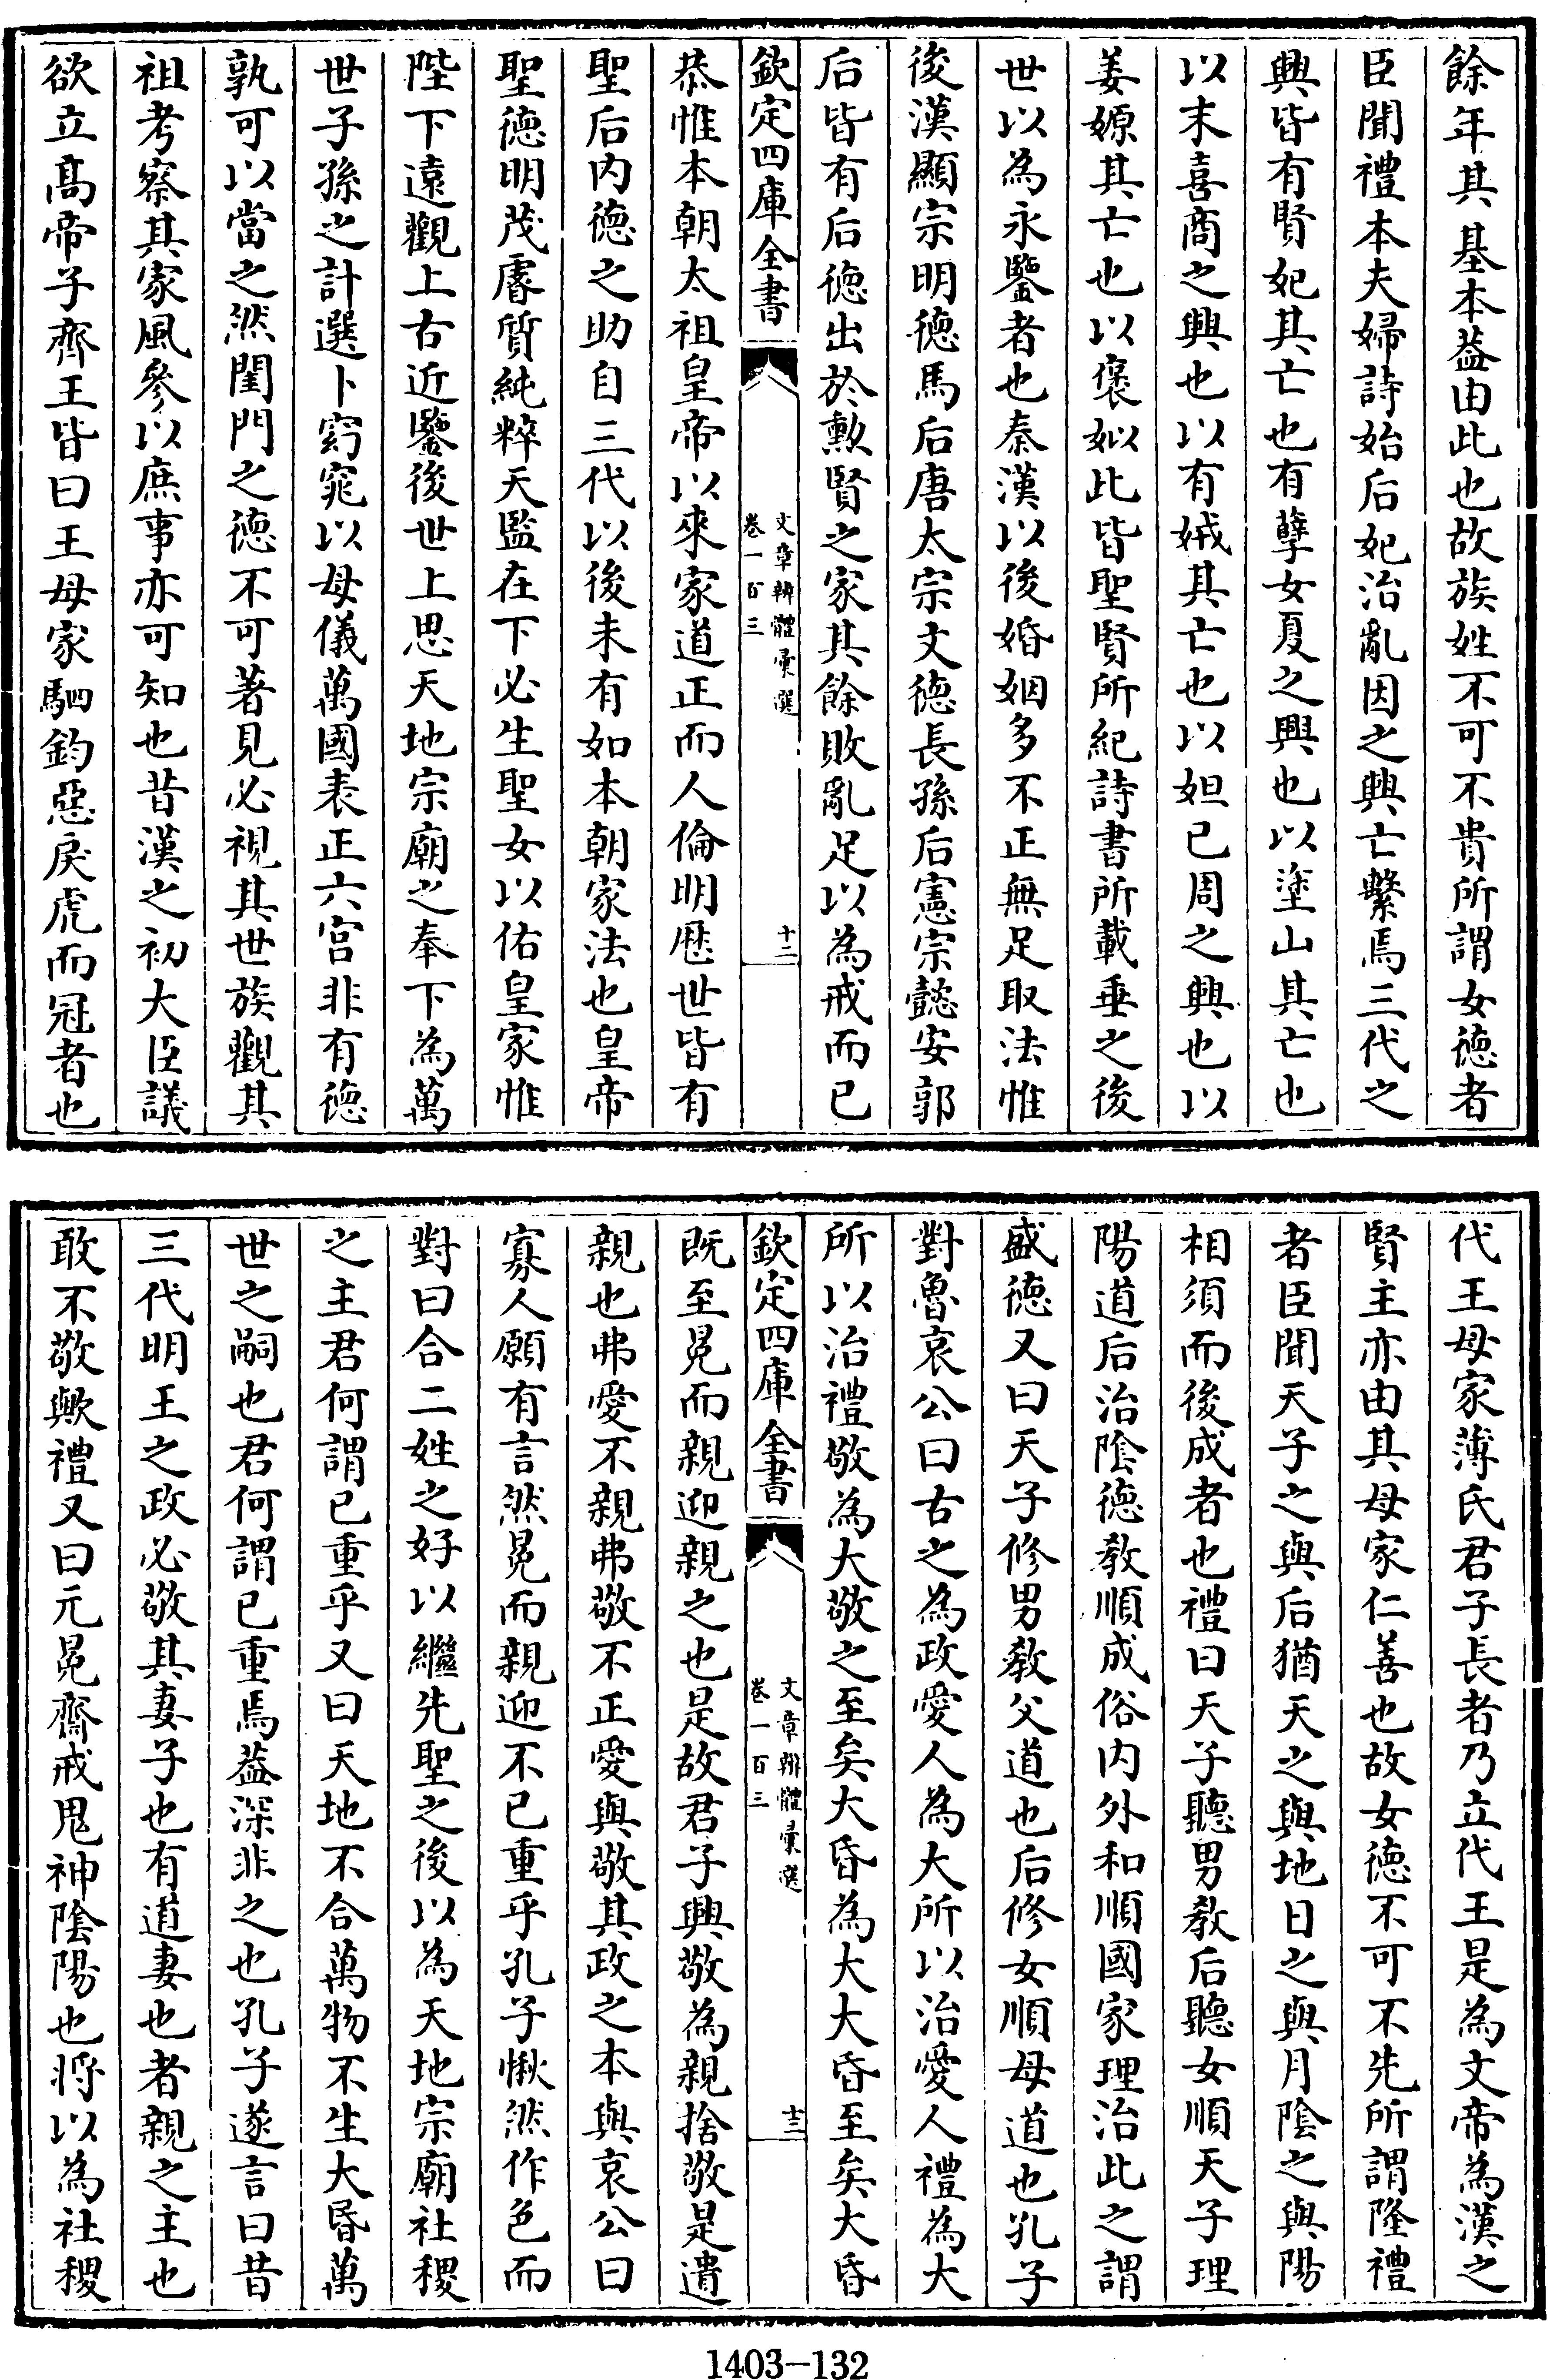 餘年其基本葢由此也故族姓不可不貴所謂女徳者
臣聞禮本夫婦詩始后妃治亂因之興亡繫焉三代之
興皆有賢妃其亡也有孽女夏之興也以塗山其亡也
以末喜商之興也以有娀其亡也以妲已周之興也以
姜嫄其亡也以褒姒此皆聖賢所紀詩書所載垂之後
世以為永鑒者也秦漢以後婚姻多不正無足取法惟
後漢顯宗明徳馬后唐太宗文徳長孫后憲宗懿安郭
后皆有后徳出於勲賢之家其餘敗亂足以為戒而已
欽定四庫全書
文章辨體彚選
卷一百三
十二
恭惟本朝太祖皇帝以來家道正而人倫明歴世皆有
聖后内徳之助自三代以後未有如本朝家法也皇帝
聖徳明茂睿質純粹天監在下必生聖女以佑皇家惟
陛下遠觀上古近鑒後世上思天地宗廟之奉下為萬
世子孫之計選卜窈窕以母儀萬國表正六宫非有徳
孰可以當之然閨門之徳不可著見必視其世族觀其
祖考察其家風參以庶事亦可知也昔漢之初大臣議
欲立髙帝子齊王皆曰王母家駟鈞惡戾虎而冠者也
代王母家薄氏君子長者乃立代王是為文帝為漢之
賢主亦由其母家仁善也故女徳不可不先所謂隆禮
者臣聞天子之與后猶天之與地日之與月陰之與陽
相須而後成者也禮曰天子聽男教后聽女順天子理
陽道后治陰徳教順成俗内外和順國家理治此之謂
盛徳又曰天子修男教父道也后修女順母道也孔子
對魯哀公曰古之為政愛人為大所以治愛人禮為大
所以治禮敬為大敬之至矣大昏為大大昏至矣大昏
欽定四庫全書
文章辨體彚選
卷一百三
十三
既至冕而親迎親之也是故君子興敬為親捨敬是遺
親也弗愛不親弗敬不正愛與敬其政之本與哀公曰
寡人願有言然冕而親迎不已重乎孔子愀然作色而
對曰合二姓之好以繼先聖之後以為天地宗廟社稷
之主君何謂已重乎又曰天地不合萬物不生大昏萬
世之嗣也君何謂已重焉葢深非之也孔子遂言曰昔
三代明王之政必敬其妻子也有道妻也者親之主也
敢不敬歟禮又曰元冕齋戒鬼神陰陽也将以為社稷
1403-132